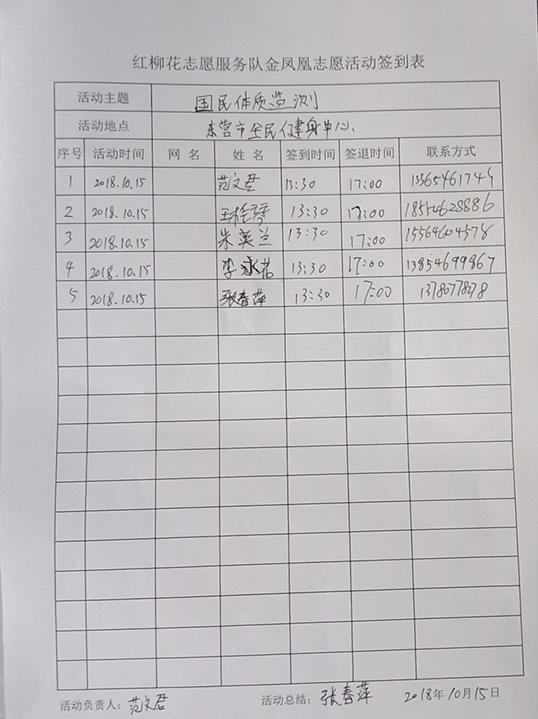 红柳花志愿服务队金凤凰志愿活动签到表
活动主题 国民体质监测
活动地点 东营市全民健身中心
序号 活动时间 网 名 姓 名 签到时间 签退时间 联系方式
1 2018.10.15 范文君 13:30 17:00
2 2018.10.15 13:30 17:00 18554628886
3 2018.10.15 朱英兰 13:30 17:00 15564604578
4 2018.10.15 李永芹 13:30 17:00 13854699867
5 2018.10.15 张春萍 13:30 17:00
活动负责人: 范文君 活动总结: 张春萍 2018年10月15日